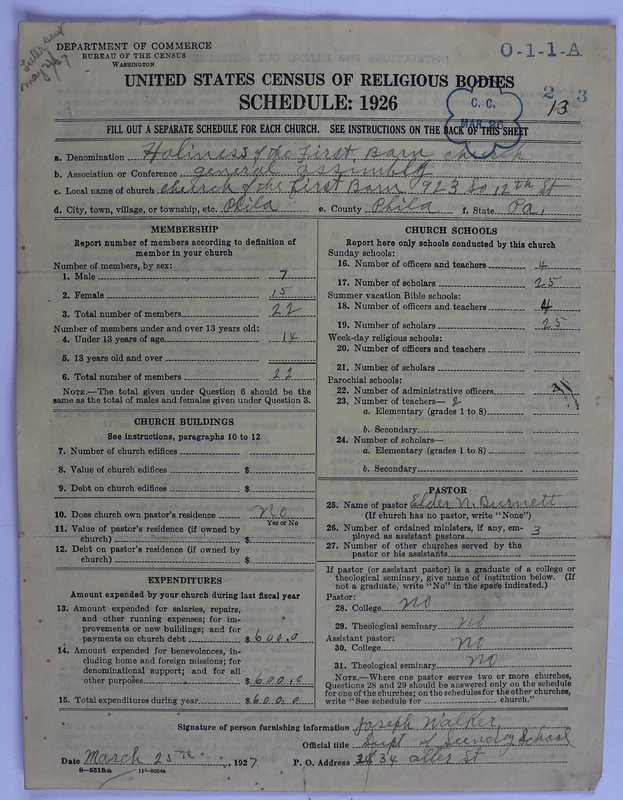 Letter sent
May 2/27
DEPARTMENT OF COMMERCE
BUREAU OF THE CENSUS
WASHINGTON
O-1-1-A
UNITED STATES CENSUS OF RELIGIOUS BODIES
SCHEDULE: 1926
C. C.
MAR 26
2 3
13
FILL OUT A SEPARATE SCHEDULE FOR EACH CHURCH. SEE INSTRUCTIONS ON THE BACK OF THIS SHEET
a. Denomination Holiness of the First Barn church
b. Association or Conference general assembly
c. Local name of church church of the first Barn 923 So 12th St
d. City, town, village, or township, etc. Phila e. County Phila f. State Pa,
MEMBERSHIP
Report number of members according to definition of
member in your church
Number of members, by sex:
1. Male 7
2. Female 15
3. Total number of members 22
Number of members under and over 13 years old:
4. Under 13 years of age 14
5. 13 years old and over
6. Total number of members 22
NOTE.—The total given under Question 6 should be the
same as the total of males and females given under Question 3.
CHURCH BUILDINGS
See instructions, paragraphs 10 to 12
7. Number of church edifices
8. Value of church edifices $
9. Debt on church edifices $
10. Does church own pastor's residence No
Yes or No
11. Value of pastor's residence (if owned by
church) $
12. Debt on pastor's residence (if owned by
church) $
EXPENDITURES
Amount expended by your church during last fiscal year
13. Amount expended for salaries, repairs,
and other running expenses; for im-
provements or new buildings; and for
payments on church debt $600.0
14. Amount expended for benevolences, in-
cluding home and foreign missions; for
denominational support; and for all
other purposes $600.0
15. Total expenditures during year $600.0
CHURCH SCHOOLS
Report here only schools conducted by this church
Sunday schools:
16. Number of officers and teachers 4
17. Number of scholars 25
Summer vacation Bible schools:
18. Number of officers and teachers 4
19. Number of scholars 25
Week-day religious schools:
20. Number of officers and teachers
21. Number of scholars
Parochial schools:
22. Number of administrative officers
23. Number of teachers— 2
a. Elementary (grades 1 to 8)
b. Secondary
24. Number of scholars—
a. Elementary (grades 1 to 8)
b. Secondary
PASTOR
25. Name of pastor Elder N. Burnett
(If church has no pastor, write "None")
26. Number of ordained ministers, if any, em-
ployed as assistant pastors 3
27. Number of other churches served by the
pastor or his assistants
If pastor (or assistant pastor) is a graduate of a college or
theological seminary, give name of institution below. (If
not a graduate, write "No" in the space indicated.)
Pastor:
28. College no
29. Theological seminary no
Assistant pastor:
30. College no
31. Theological seminary no
NOTE.—Where one pastor serves two or more churches,
Questions 28 and 29 should be answered only on the schedule
for one of the churches; on the schedules for the other churches,
write "See schedule for church."
Signature of person furnishing information Joseph Walker
Official title Supt of Sunday School
Date March 25th, 1927 P. O. Address 34 St
8—5518-a 11—9054a